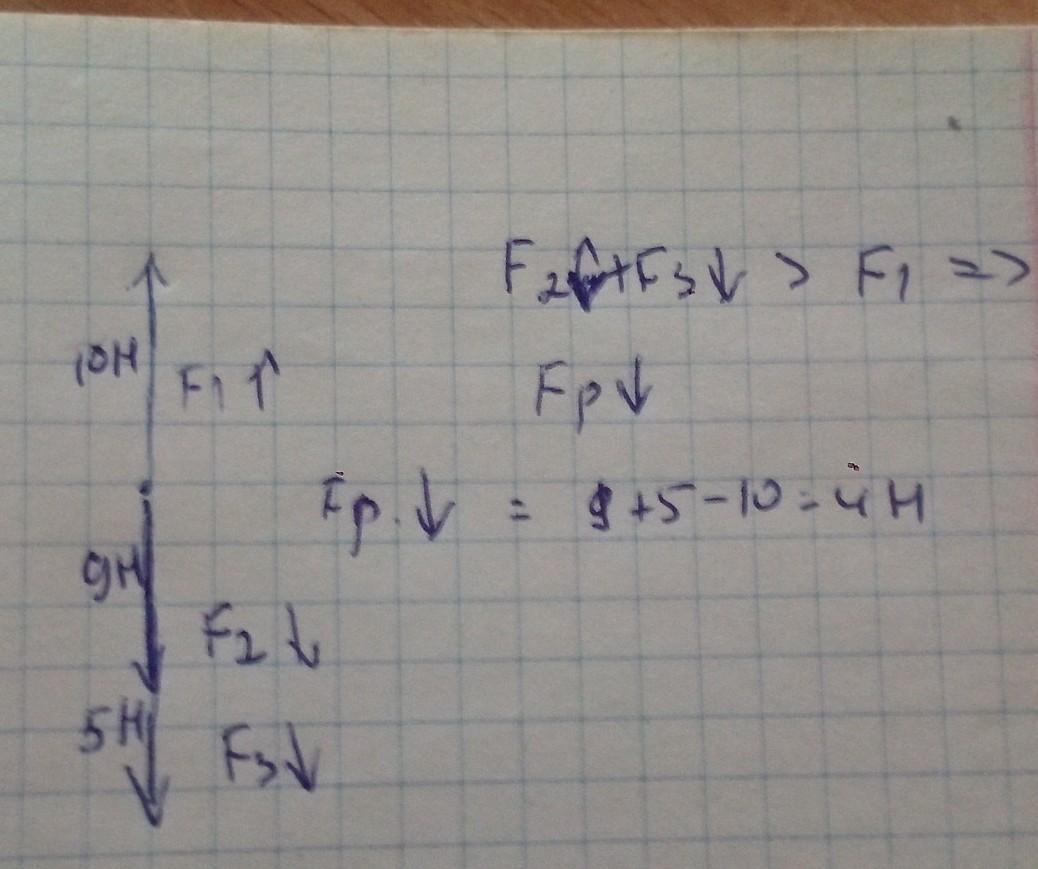 F2↓+F3↓ > F1 =>
10Н
F1↑
Fр↓
Fр.↓ = 9+5-10=4Н
9Н
F2↓
5Н
F3↓